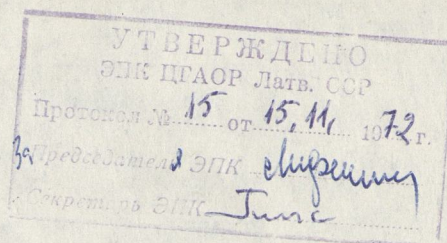 УТВЕРЖДЕНО
ЭПК ЦГАОР Латв. ССР
Протокол № 15 от 15, 11, 1972 г.
За Председателя ЭПК
Секретарь ЭПК